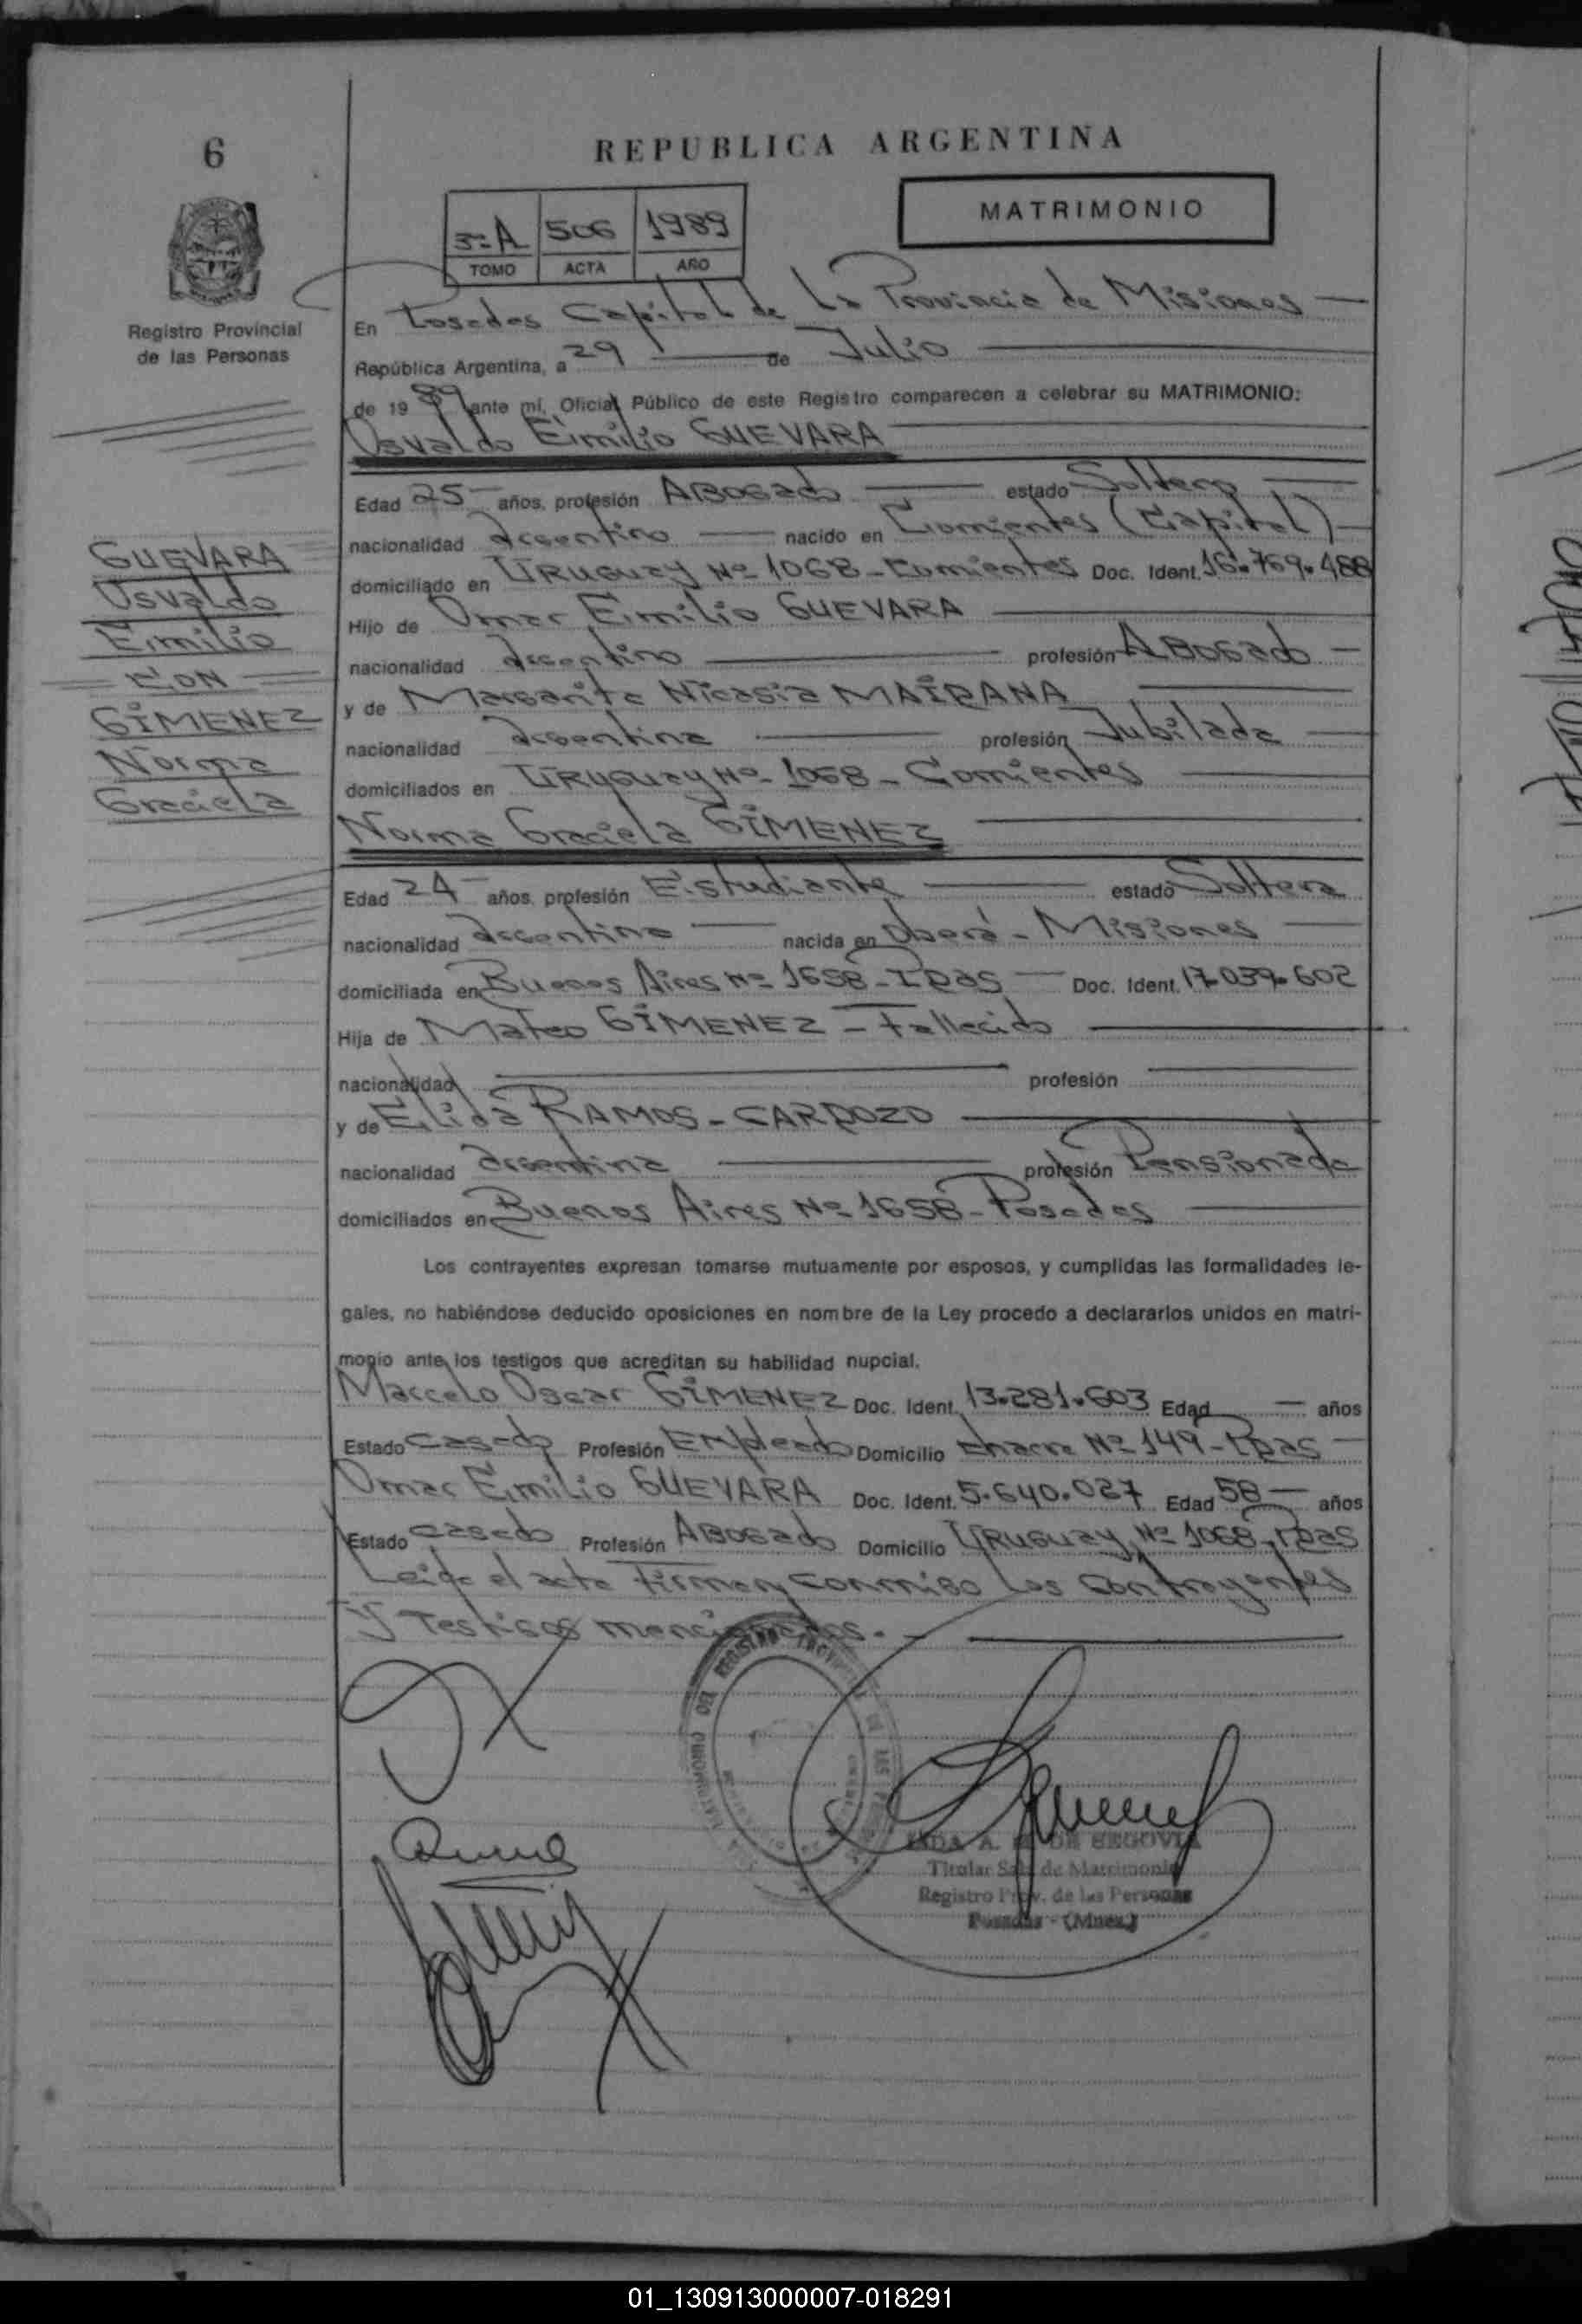 6
REPUBLICA ARGENTINA
MATRIMONIO
3º A 506 1989
TOMO ACTA AÑO
Registro Provincial
de las Personas
En Posadas Capital de La Provincia de Misiones
República Argentina, a 29 de Julio
de 1989 ante mí, Oficial Público de este Registro comparecen a celebrar su MATRIMONIO:
Osvaldo Emilio GUEVARA
Edad 25 años, profesión Abogado estado Soltero
nacionalidad argentino nacido en Corrientes (Capital)
domiciliado en Uruguay Nº 1068 - Corrientes Doc. Ident. 16.769.488
Hijo de Omar Emilio GUEVARA
nacionalidad argentino profesión Abogado
y de Margarita Nicasia MAIDANA
nacionalidad argentina profesión Jubilada
domiciliados en Uruguay Nº 1068 - Corrientes
Norma Graciela GIMENEZ
Edad 24 años, profesión Estudiante estado Soltera
nacionalidad argentina nacida en Oberá - Misiones
domiciliada en Buenos Aires Nº 1658 - Pdas Doc. Ident. 17.039.602
Hija de Mateo GIMENEZ - Fallecido
nacionalidad profesión
y de Elida RAMOS - CARDOZO
nacionalidad argentina profesión Pensionada
domiciliados en Buenos Aires Nº 1658 - Posadas
Los contrayentes expresan tomarse mutuamente por esposos, y cumplidas las formalidades le-
gales, no habiéndose deducido oposiciones en nombre de la Ley procedo a declararlos unidos en matri-
monio ante los testigos que acreditan su habilidad nupcial.
Marcelo Oscar GIMENEZ Doc. Ident. 13.281.603 Edad — años
Estado casado Profesión Empleado Domicilio chacra Nº 149 - Pdas
Omar Emilio GUEVARA Doc. Ident. 5.640.027 Edad 58 años
Estado casado Profesión Abogado Domicilio Uruguay Nº 1068 - Pdas
Leida el acta Firman conmigo Los contrayentes
y Testigos mencionados.
GUEVARA
Osvaldo
Emilio
CON
GIMENEZ
Norma
Graciela
DE SEGOVIA
Titular Sala de Matrimonio
Registro Prov. de las Personas
Posadas - (Mnes.)
01_130913000007-018291